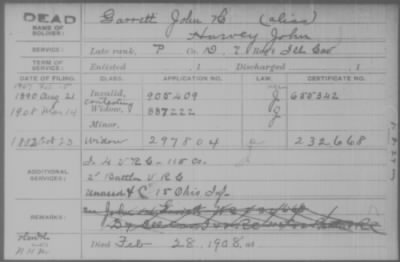 DEAD
NAME OF SOLDIER:
Garrett John H (alias)
Harvey John
SERVICE: Late rank, P Co. D, 7 Reg't Ills Cav
TERM OF SERVICE: Enlisted , 1 Discharged , 1
DATE OF FILING. CLASS. APPLICATION NO. LAW. CERTIFICATE NO.
1890 Aug 21 Invalid, 905409 J 655342
1908 Mar 14 contesting Widow, 887222 J
Minor,
1882 Oct 23 Widow 297804 232668
ADDITIONAL SERVICES:
I. 4 V R C - 115 Co.
2' Battln V R C
Unassd & C 15 Ohio Inf.
REMARKS:
Died Feb 28, 1908, at